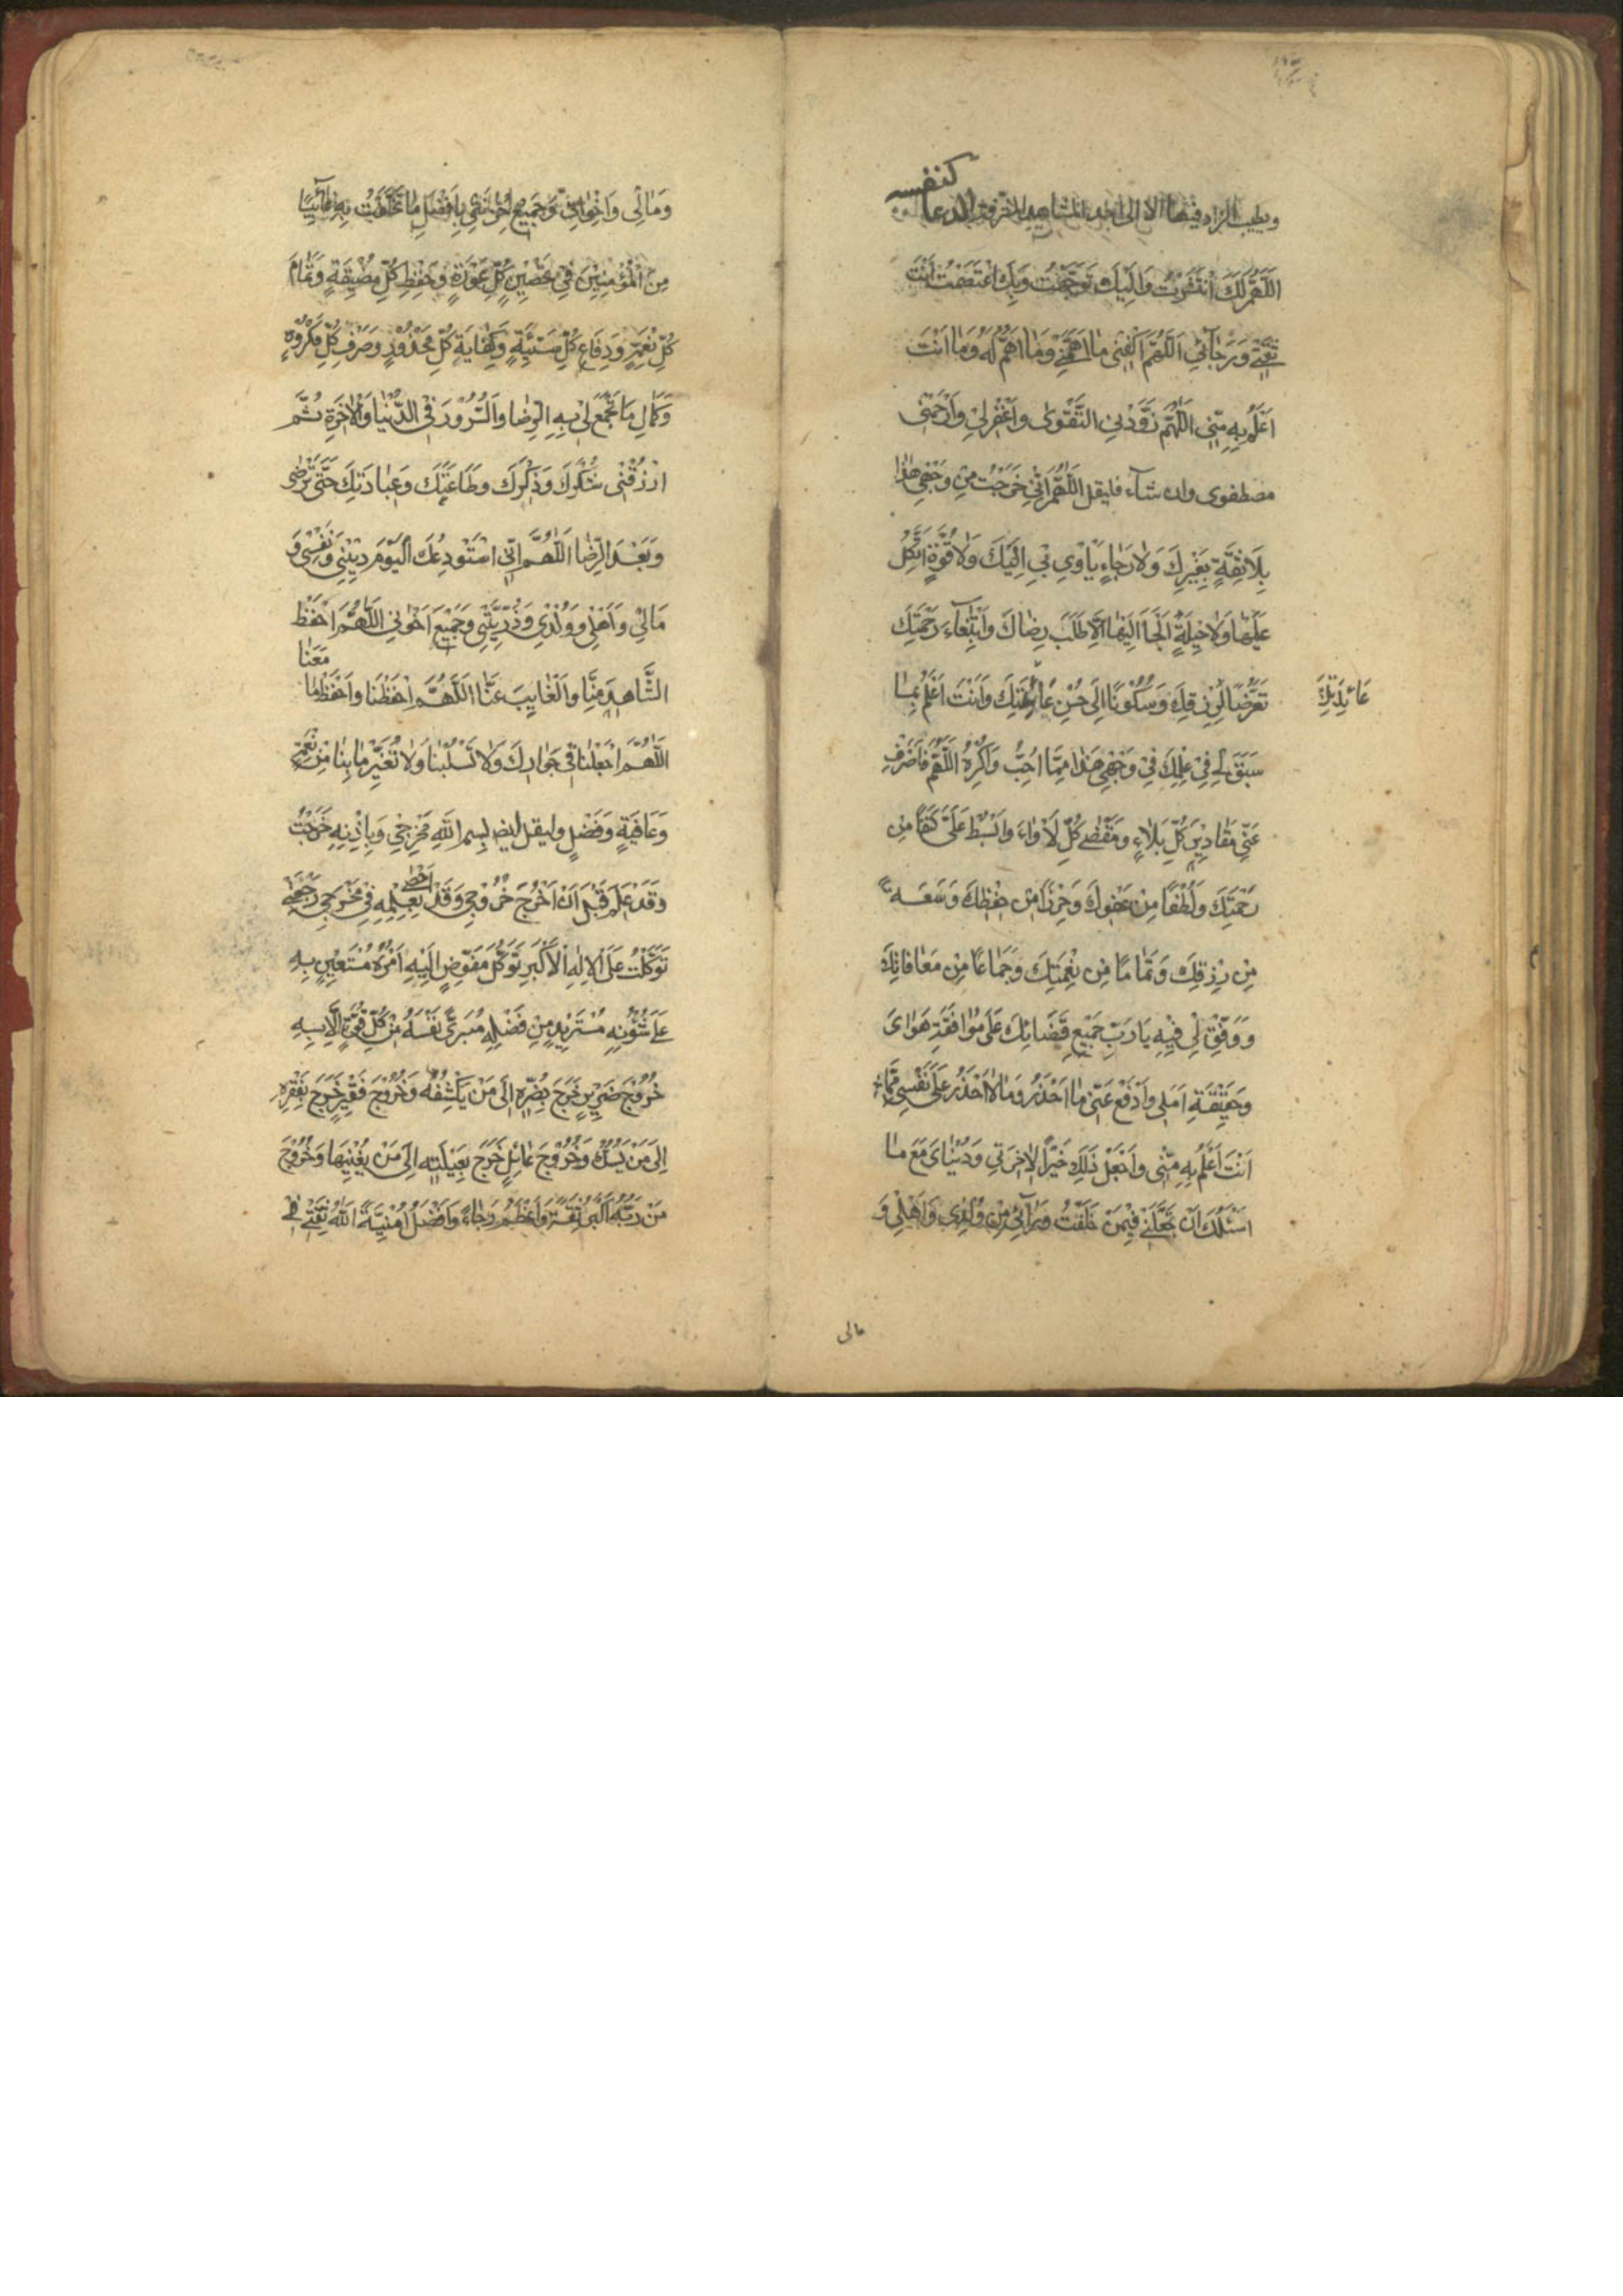 كنفسه
ويطيب الزاد فيها الا الى احد المشاهد المشرفة الدعاء
اَللّٰهُمَّ لَكَ انْتَشَرْتُ وَاِلَيْكَ تَوَجَّهْتُ وَبِكَ اعْتَصَمْتُ اَنْتَ
ثِقَتِي وَرَجَآئِي اَللّٰهُمَّ اكْفِنِي مٰا اَهَمَّنِي وَمٰا اَهَمَّ لَهُ وَمٰا اَنْتَ
اَعْلَمُ بِهِ مِنِّي اَللّٰهُمَّ زَوِّدْنِي التَّقْوٰى وَاغْفِرْ لِي وَارْحَمْنِي
مصطفوى وان شآء فليقل اَللّٰهُمَّ اِنِّي خَرَجْتُ مِنْ وَجْهِي هٰذٰا
بِلَا ثِقَةٍ بِغَيْرِكَ وَلٰا رَجٰاءٍ يَأْوِي بِي اِلَيْكَ وَلٰا قُوَّةٍ اَتَّكِلُ
عَلَيْهٰا وَلٰا حِيلَةٍ اَلْجَأُ اِلَيْهٰا اِلَّا طَلَبَ رِضٰاكَ وَابْتِغٰآءَ رَحْمَتِكَ
تَعَرُّضًا لِرِزْقِكَ وَسُكُونًا اِلٰى حُسْنِ وَاَنْتَ اَعْلَمُ بِمٰا
عَائِدَتِكَ
سَبَقَ لِي فِي عِلْمِكَ فِي وَجْهِي هٰذٰا مِمَّا اُحِبُّ وَاَكْرَهُ اَللّٰهُمَّ فَاصْرِفْ
عَنِّي مَقٰادِيرَ كُلِّ بَلٰاءٍ وَمَقْضِيَّ كُلِّ لَأْوٰاءَ وَابْسُطْ عَلَيَّ كَنَفًا مِنْ
رَحْمَتِكَ وَلُطْفًا مِنْ عَفْوِكَ وَحِرْزًا مِنْ حِفْظِكَ وَسَعَةً
مِنْ رِزْقِكَ وَتَمٰامًا مِنْ نِعْمَتِكَ وَجِمٰاعًا مِنْ مُعٰافٰاتِكَ
وَوَفِّقْ لِي فِيهِ يَا رَبِّ جَمِيعَ قَضَائِكَ عَلٰى مُوٰافَقَةِ هَوٰاىَ
وَحَقِيقَةِ اَمَلِي وَادْفَعْ عَنِّي مٰا اَحْذَرُ وَمٰا لٰا اَحْذَرُ عَلٰى نَفْسِي مِمَّا
اَنْتَ اَعْلَمُ بِهِ مِنِّي وَاجْعَلْ ذٰلِكَ خَيْرًا لِاٰخِرَتِي وَدُنْيٰاىَ مَعَ مٰا
اَسْئَلُكَ اَنْ تَخْلُفَنِي فِيمَنْ خَلَّفْتُ وَرٰآئِي مِنْ وُلْدِي وَاَهْلِي وَ
مالى
وَمٰالِي وَاِخْوٰانِي وَجَمِيعِ حُزٰانَتِي بِاَفْضَلِ مٰا تَخْلُفُ بِهِ غٰآئِبًا
مِنَ الْمُؤْمِنِينَ فِي تَحْصِينِ كُلِّ عَوْرَةٍ وَحِفْظِ كُلِّ مَضِيقَةٍ وَتَمٰامِ
كُلِّ نِعْمَةٍ وَدِفَاعِ كُلِّ سَيِّئَةٍ وَكِفٰايَةِ كُلِّ مَحْذُورٍ وَصَرْفِ كُلِّ مَكْرُوهٍ
وَكَمٰالِ مَا تَجْمَعُ لِي بِهِ الرِّضٰا وَالسُّرُورَ فِي الدُّنْيٰا وَالْاٰخِرَةِ ثُمَّ
ارْزُقْنِي شُكْرَكَ وَذِكْرَكَ وَطَاعَتَكَ وَعِبٰادَتَكَ حَتّٰى تَرْضٰى
وَبَعْدَ الرِّضٰا اَللّٰهُمَّ اِنِّي اَسْتَوْدِعُكَ الْيَوْمَ دِيْنِي وَنَفْسِي وَ
مَالِي وَاَهْلِي وَوُلْدِي وَذُرِّيَّتِي وَجَمِيعَ اِخْوٰانِي اَللّٰهُمَّ احْفَظْ
الشَّاهِدَ مِنَّا وَالْغٰايِبَ عَنَّا اَللّٰهُمَّ احْفَظْنَا وَاحْفَظْ مٰا مَعَنٰا
اَللّٰهُمَّ اجْعَلْنٰا فِي جَوٰارِكَ وَلٰا تَسْلُبْنٰا وَلٰا تُغَيِّرْ مٰا بِنٰا مِنْ نِعْمَةٍ
وَعَافِيَةٍ وَفَضْلٍ وليقل ايضا بِسْمِ اللّٰهِ مَخْرَجِي وَبِاِذْنِهِ خَرَجْتُ
وَقَدْ عَلِمَ قَبْلَ اَنْ اَخْرُجَ خُرُوجِي وَقَدْ اَحْصٰى بِعِلْمِهِ فِي مَخْرَجِي رَجْعَتِي
تَوَكَّلْتُ عَلَى الْاِلٰهِ الْاَكْبَرِ تَوَكُّلَ مُفَوِّضٍ اِلَيْهِ اَمْرَهُ مُسْتَعِينٍ بِهِ
عَلٰى شُؤُنِهِ مُسْتَزِيدٍ مِنْ فَضْلِهِ مُبَرِّئٍ نَفْسَهُ مِنْ كُلِّ قُوَّةٍ اِلَّا بِهِ
خُرُوجَ ضَرِيرٍ خَرَجَ بِضُرِّهِ اِلٰى مَنْ يَكْشِفُهُ وَخُرُوجَ فَقِيرٍ خَرَجَ بِفَقْرِهِ
اِلٰى مَنْ يَسُدُّهُ وَخُرُوجَ عٰائِلٍ خَرَجَ بِعَيْلَتِهِ اِلٰى مَنْ يُغْنِيهٰا وَخُرُوجَ
مَنْ رَبُّهُ اَكْبَرُ ثِقَتِهِ وَاَعْظَمُ رَجٰاءً وَاَفْضَلُ اُمْنِيَّةً اَللّٰهُ ثِقَتِي فِي